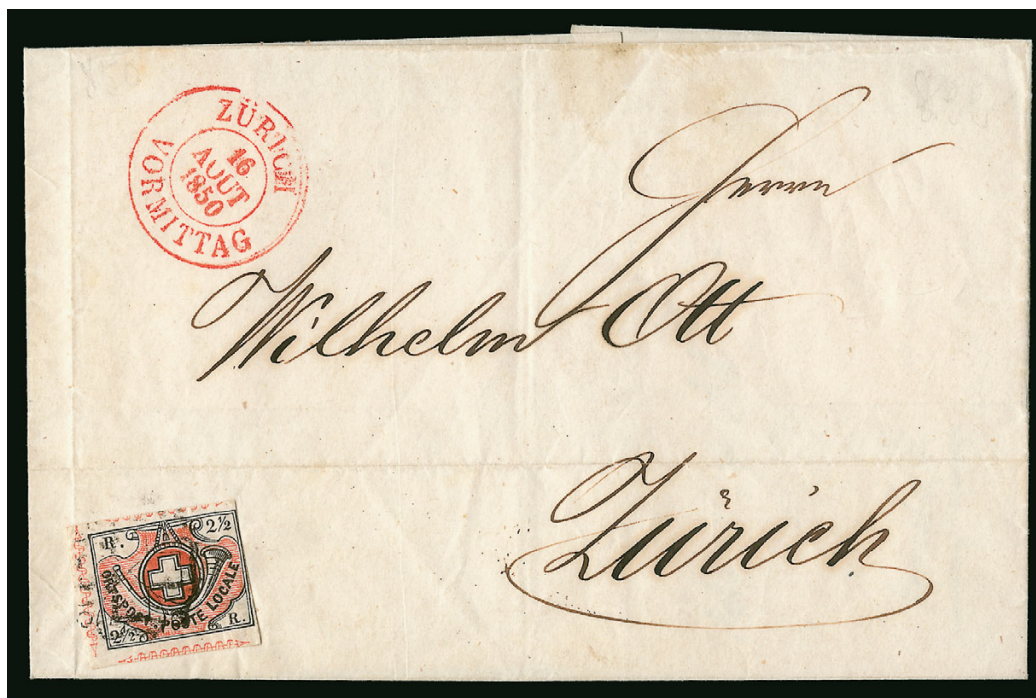 ZÜRICH
16
AOUT
1850
VORMITTAG
Herrn
Wilhelm Ott
Zürich
R. 2½
ORTS-POST. POSTE LOCALE
2½ R.